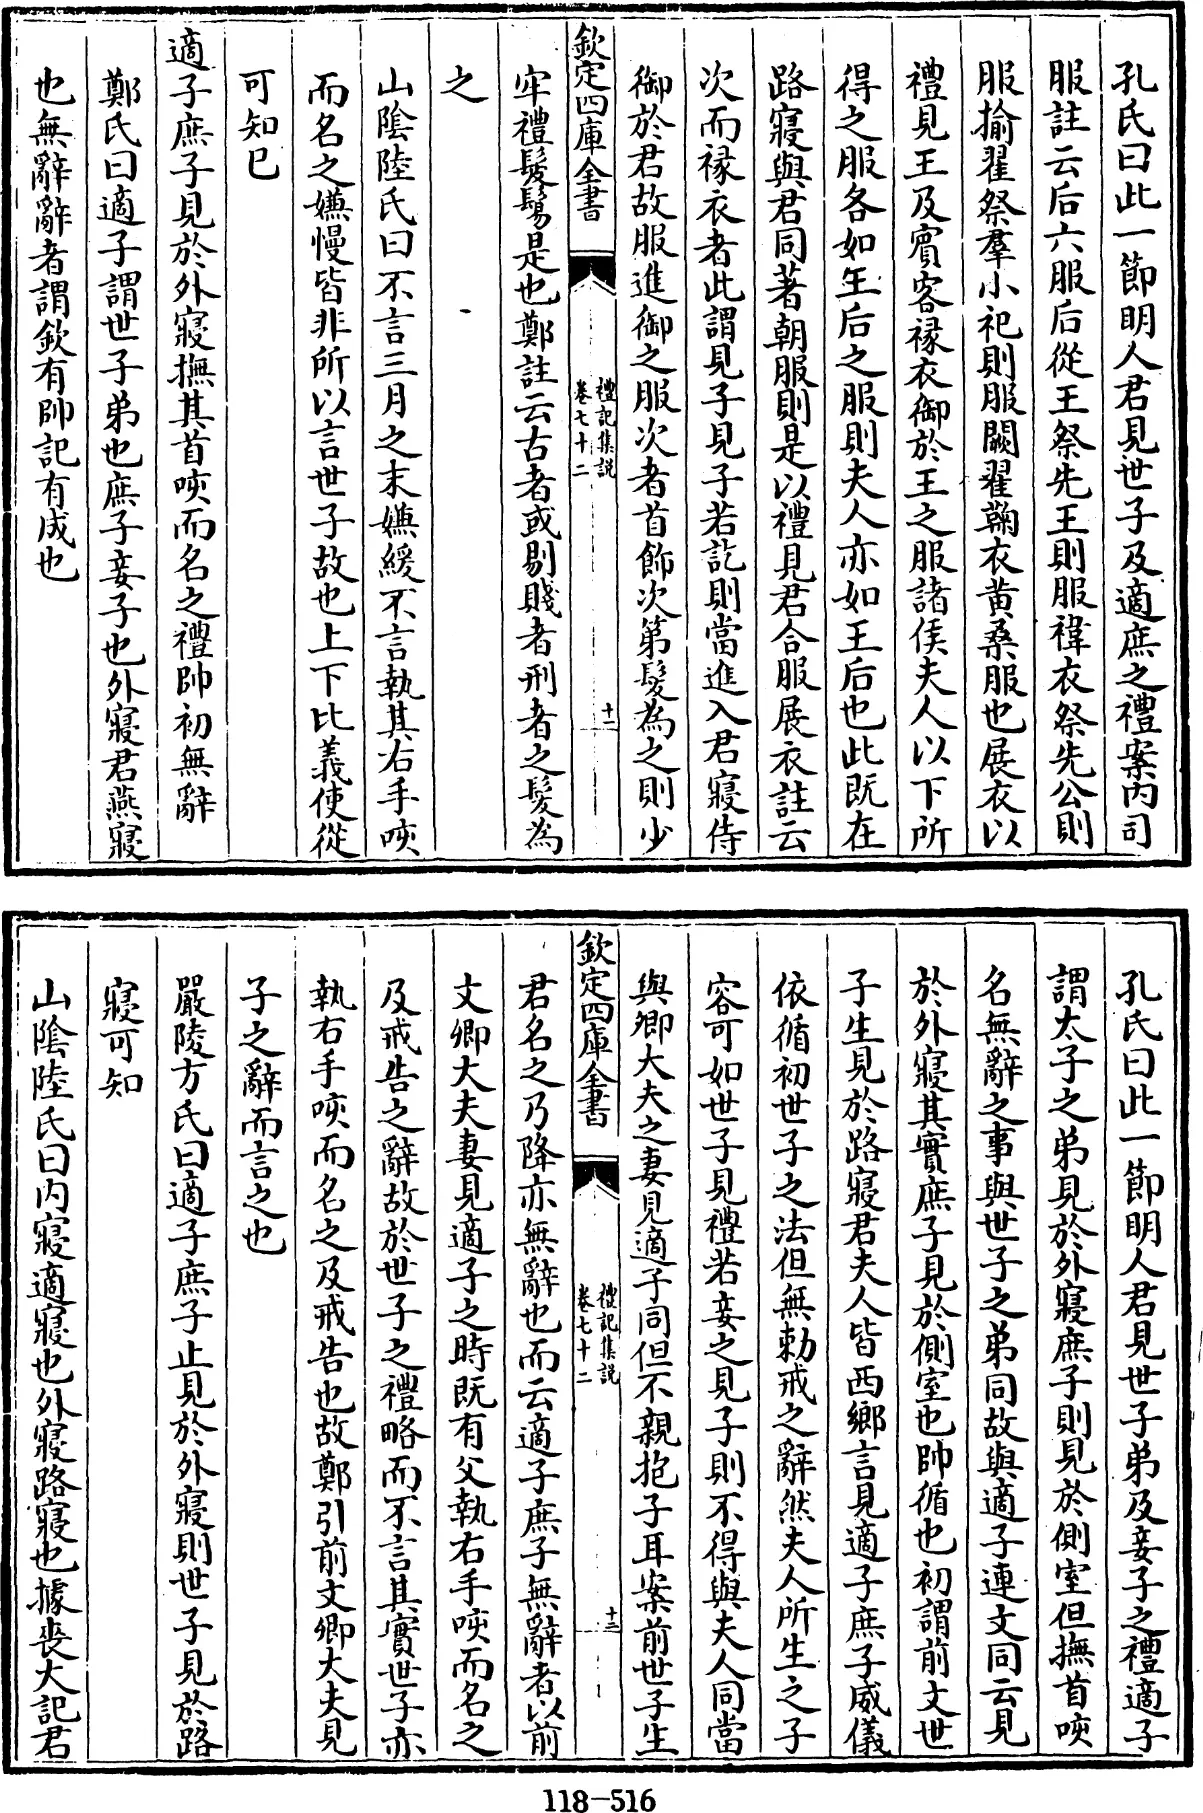 孔氏曰此一節明人君見世子及適庶之禮案内司
服註云后六服后從王祭先王則服褘衣祭先公則
服揄翟祭羣小祀則服闕翟鞠衣黄桑服也展衣以
禮見王及賓客褖衣御於王之服諸侯夫人以下所
得之服各如王后之服則夫人亦如王后也此既在
路寢與君同著朝服則是以禮見君合服展衣註云
次而褖衣者此謂見子見子若訖則當進入君寢侍
御於君故服進御之服次者首飾次第髮為之則少
欽定四庫全書
禮記集説
卷七十二
十一
牢禮髲鬄是也鄭註云古者或剔賤者刑者之髮為
之
山陰陸氏曰不言三月之末嫌緩不言執其右手咳
而名之嫌慢皆非所以言世子故也上下比義使從
可知已
適子庶子見於外寢撫其首咳而名之禮帥初無辭
鄭氏曰適子謂世子弟也庶子妾子也外寢君燕寢
也無辭辭者謂欽有帥記有成也
孔氏曰此一節明人君見世子弟及妾子之禮適子
謂太子之弟見於外寢庶子則見於側室但撫首咳
名無辭之事與世子之弟同故與適子連文同云見
於外寢其實庶子見於側室也帥循也初謂前文世
子生見於路寢君夫人皆西鄉言見適子庶子威儀
依循初世子之法但無勅戒之辭然夫人所生之子
容可如世子見禮若妾之見子則不得與夫人同當
與卿大夫之妻見適子同但不親抱子耳案前世子生
欽定四庫全書
禮記集説
卷七十二
十二
君名之乃降亦無辭也而云適子庶子無辭者以前
文卿大夫妻見適子之時既有父執右手咳而名之
及戒告之辭故於世子之禮略而不言其實世子亦
執右手咳而名之及戒告也故鄭引前文卿大夫見
子之辭而言之也
嚴陵方氏曰適子庶子止見於外寢則世子見於路
寢可知
山陰陸氏曰内寢適寢也外寢路寢也據喪大記君
118-516